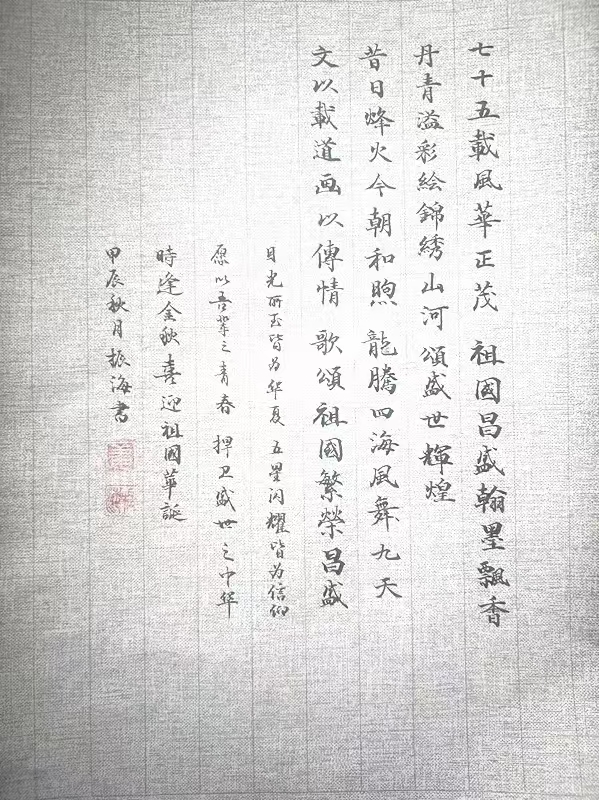 七十五載風華正茂 祖國昌盛翰墨飄香
丹青溢彩絵錦綉山河頌盛世輝煌
昔日烽火今朝和煦 龍騰四海風舞九天
文以載道画以傳情 歌頌祖國繁榮昌盛
目光所至皆为华夏 五星闪耀皆为信仰
愿以吾辈之青春 捍卫盛世之中华
時逢金秋喜迎祖國華誕
甲辰秋月振海書